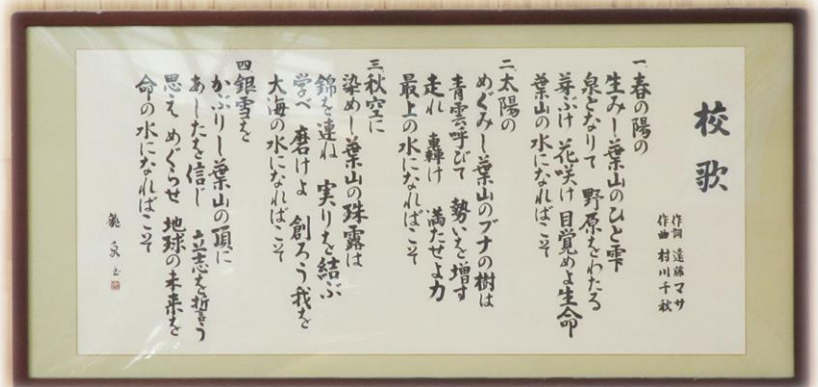 校歌
作詞 遠藤マサ
作曲 村川千秋
一、春の陽の
生みし葉山のひと雫
泉となりて 野原をわたる
芽ぶけ 花咲け 目覚めよ生命
葉山の水になればこそ
二、太陽の
めぐみし葉山のブナの樹は
青雲呼びて 勢いを増す
走れ 轟け 満たせよ力
最上の水になればこそ
三、秋空に
染めし葉山の珠露は
錦を連ね 実りを結ぶ
学べ 磨けよ 創ろう我を
大海の水になればこそ
四、銀雪を
かぶりし葉山の頂に
あしたを信じ 立志を誓う
思え めぐらせ 地球の未来を
命の水になればこそ